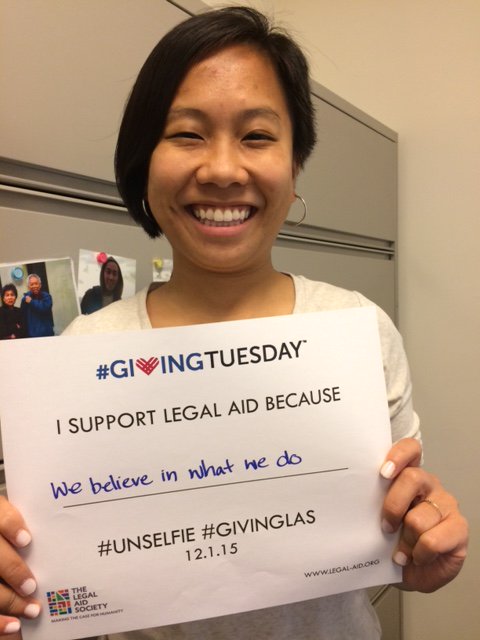 #GIVINGTUESDAY™
I SUPPORT LEGAL AID BECAUSE
We believe in what we do
#UNSELFIE #GIVINGLAS
12.1.15
WWW.LEGAL-AID.ORG
THE
LEGAL
AID
SOCIETY
MAKING THE CASE FOR HUMANITY